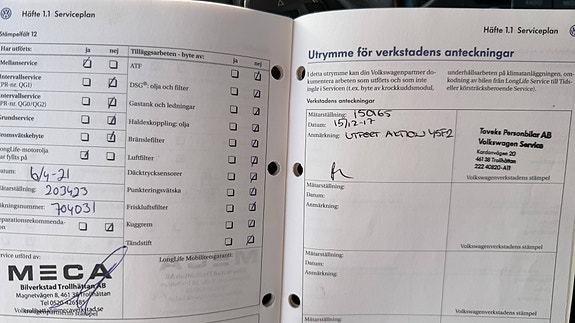 Häfte 1.1 Serviceplan
Stämpelfält 12
Har utförts: ja nej
Mellanservice
Intervallservice
(PR-nr. QG1)
Intervallservice
(PR-nr. QG0/QG2)
Grundservice
Bromsvätskebyte
LongLife-motorolja
har fyllts på
Datum: 6/4-21
Mätarställning: 203423
704031
Reparationsrekommenda-
tion
Service utförd av:
MECA
Bilverkstad Trollhättan AB
Magnetvägen 8, 461 38 Trollhättan
Tel 0520-426585
Tilläggsarbeten - byte av: ja nej
ATF
DSG®: olja och filter
Gastank och ledningar
Haldexkoppling: olja
Bränslefilter
Luftfilter
Däcktrycksensorer
Punkteringsvätska
Friskluftsfilter
Kuggrem
Tändstift
LongLife Mobilitetsgaranti:
Häfte 1.1 Serviceplan
Utrymme för verkstadens anteckningar
I detta utrymme kan din Volkswagenpartner do-
kumentera arbeten som utförts och som inte
ingår i Servicen (t.ex. byte av krockkuddsmodul,
underhållsarbeten på klimatanläggningen, om-
kodning av bilen från LongLife Service till Tids-
eller körsträckeberoende Service).
Verkstadens anteckningar
Mätarställning: 150165
Datum: 15/12-17
Anmärkning: UTFÖRT AKTION 45F2
Toveks Personbilar AB
Volkswagen Service
Kardanvägen 20
461 38 Trollhättan
222 40820-AIT
Volkswagenverkstadens stämpel
Mätarställning:
Datum:
Anmärkning:
Volkswagenverkstadens stämpel
Mätarställning:
Datum:
Anmärkning:
Volkswagenverkstadens stämpel